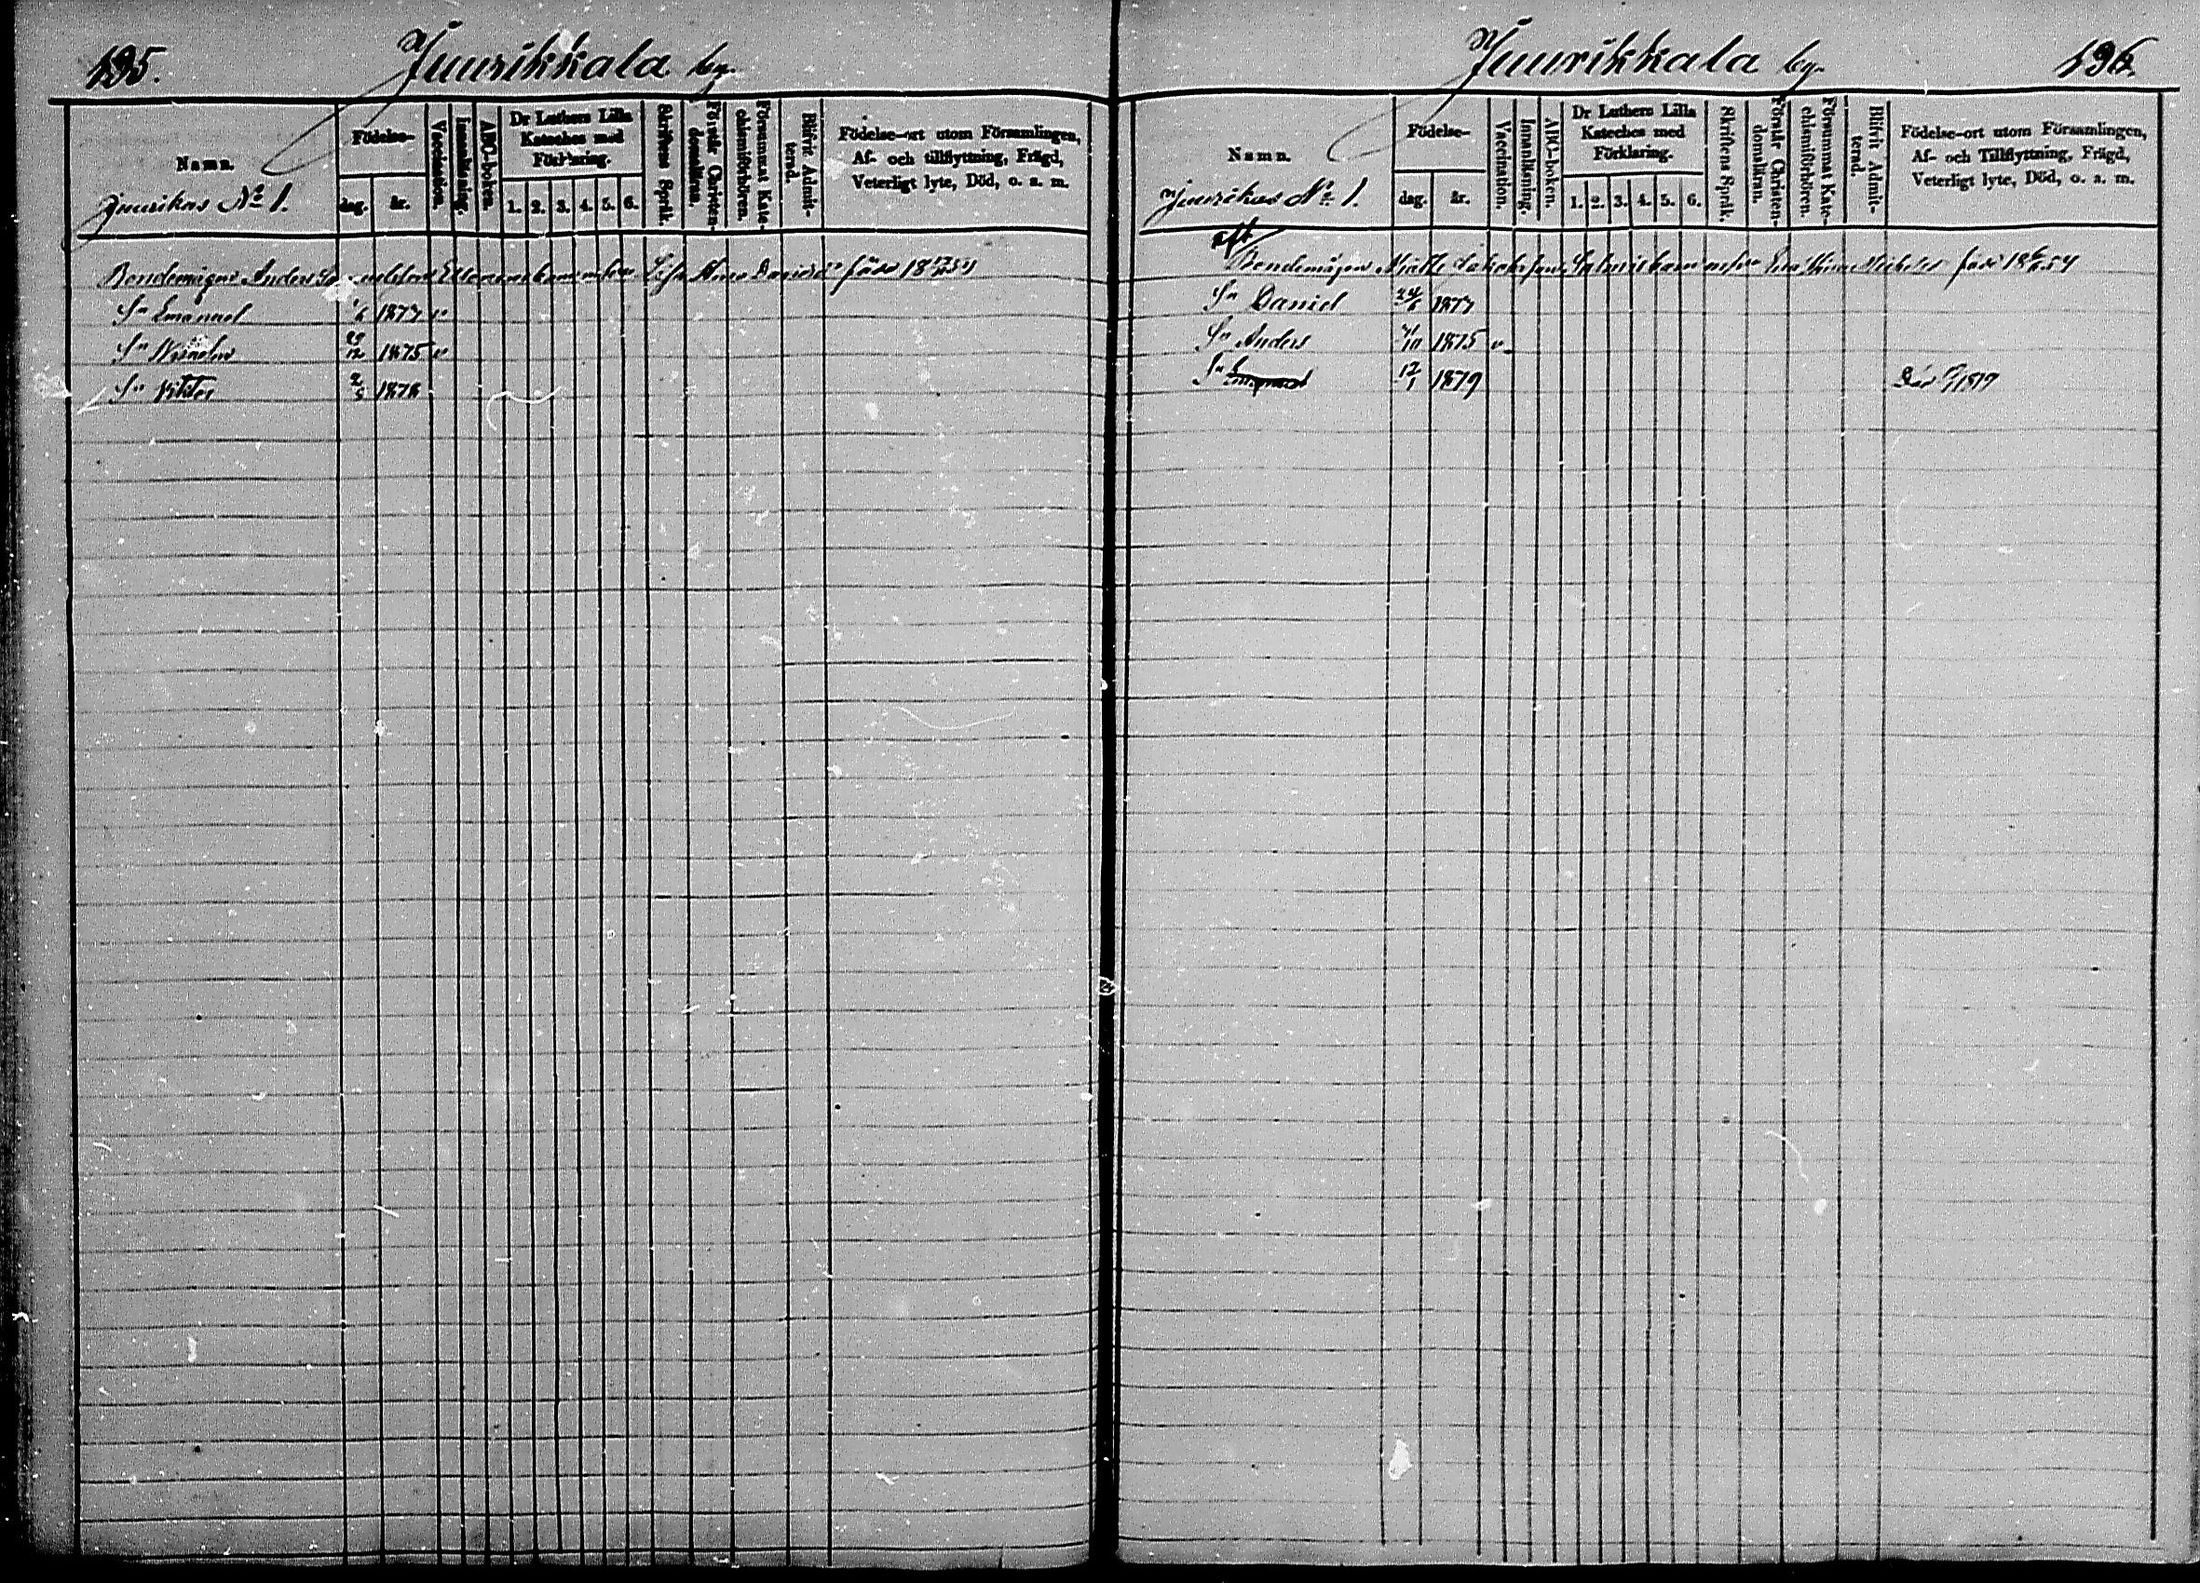 195.
Juurikkala by.
Namn.
Juurikas No 1.
Födelse-
dag.
år.
Vaccination.
Innanläsning.
ABC-boken.
Dr Luthers Lilla
Kateches med
Förklaring.
1. 2. 3. 4. 5. 6.
Skriftens Språk.
Förstår Christen-
domsläran.
Försummat Kate-
chismiförhören.
Blifvit Admit-
terad.
Födelse-ort utom Församlingen,
Af- och tillflyttning, Frägd,
Veterligt lyte, Död, o. s. m.
Bondemågen Anders
Anna född
Sn Emanuel 1877 v
Sn Wilhelm 29/12 1875 v
Sn Viktor 2/5 1878
Juurikkala by.
196.
Namn.
Juurikas No 1.
Födelse-
dag.
år.
Vaccination.
Innanläsning.
ABC-boken.
Dr Luthers Lilla
Kateches med
Förklaring.
1. 2. 3. 4. 5. 6.
Skriftens Språk.
Förstår Christen-
domsläran.
Försummat Kate-
chismiförhören.
Blifvit Admit-
terad.
Födelse-ort utom Församlingen,
Af- och Tillflyttning, Frägd,
Veterligt lyte, Död, o. s. m.
Bondemågen Matts Jakobsson
Sn Daniel 24/6 1877
Sn Anders 1875 v.
Sn 12/1 1879 Död 1879